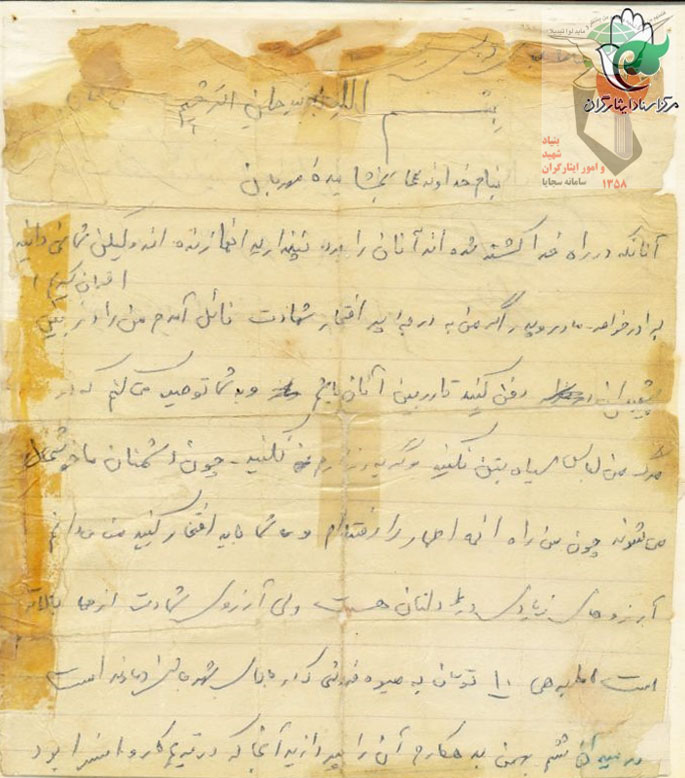 مرکز اسناد ایثارگران
بنیاد
شهید
و امور ایثارگران
سامانه سجایا
۱۳۵۸
بسم الله الرحمن الرحیم
بنام خداوند بخشاینده مهربان
آنانکه در راه خدا کشته شده اند آنان را مرده نپندارید انها زنده اند ولیکن شما نمی دانید
قران کریم
برادر خواهر مادر و پدر اگر من به درجه پر افتخار شهادت نائل آمدم من را در بین
شهیدان دفن کنید تا در بین آنان باشم و به شما توصیه می کنم که در
مرگ من لباس سیاه بتن نکنید و گریه و زاری نکنید - چون دشمنان ما خوشحال
می شوند چون من راه ائمه اطهار را رفته ام و شما باید افتخار کنید من می دانم
آرزو های زیادی در دلتان هست ولی آرزوی شهادت از همه بالاتر
است ۱۰ تومان به میوه فروشی که
در میدان ششم بهمن بدهکارم آن را بپردازید آنجا که